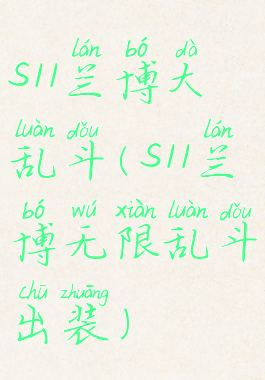 lán bó dà
S11兰博大
luàn dǒu lán
乱斗(S11兰
bó wú xiàn luàn dǒu
博无限乱斗
chū zhuāng
出装)